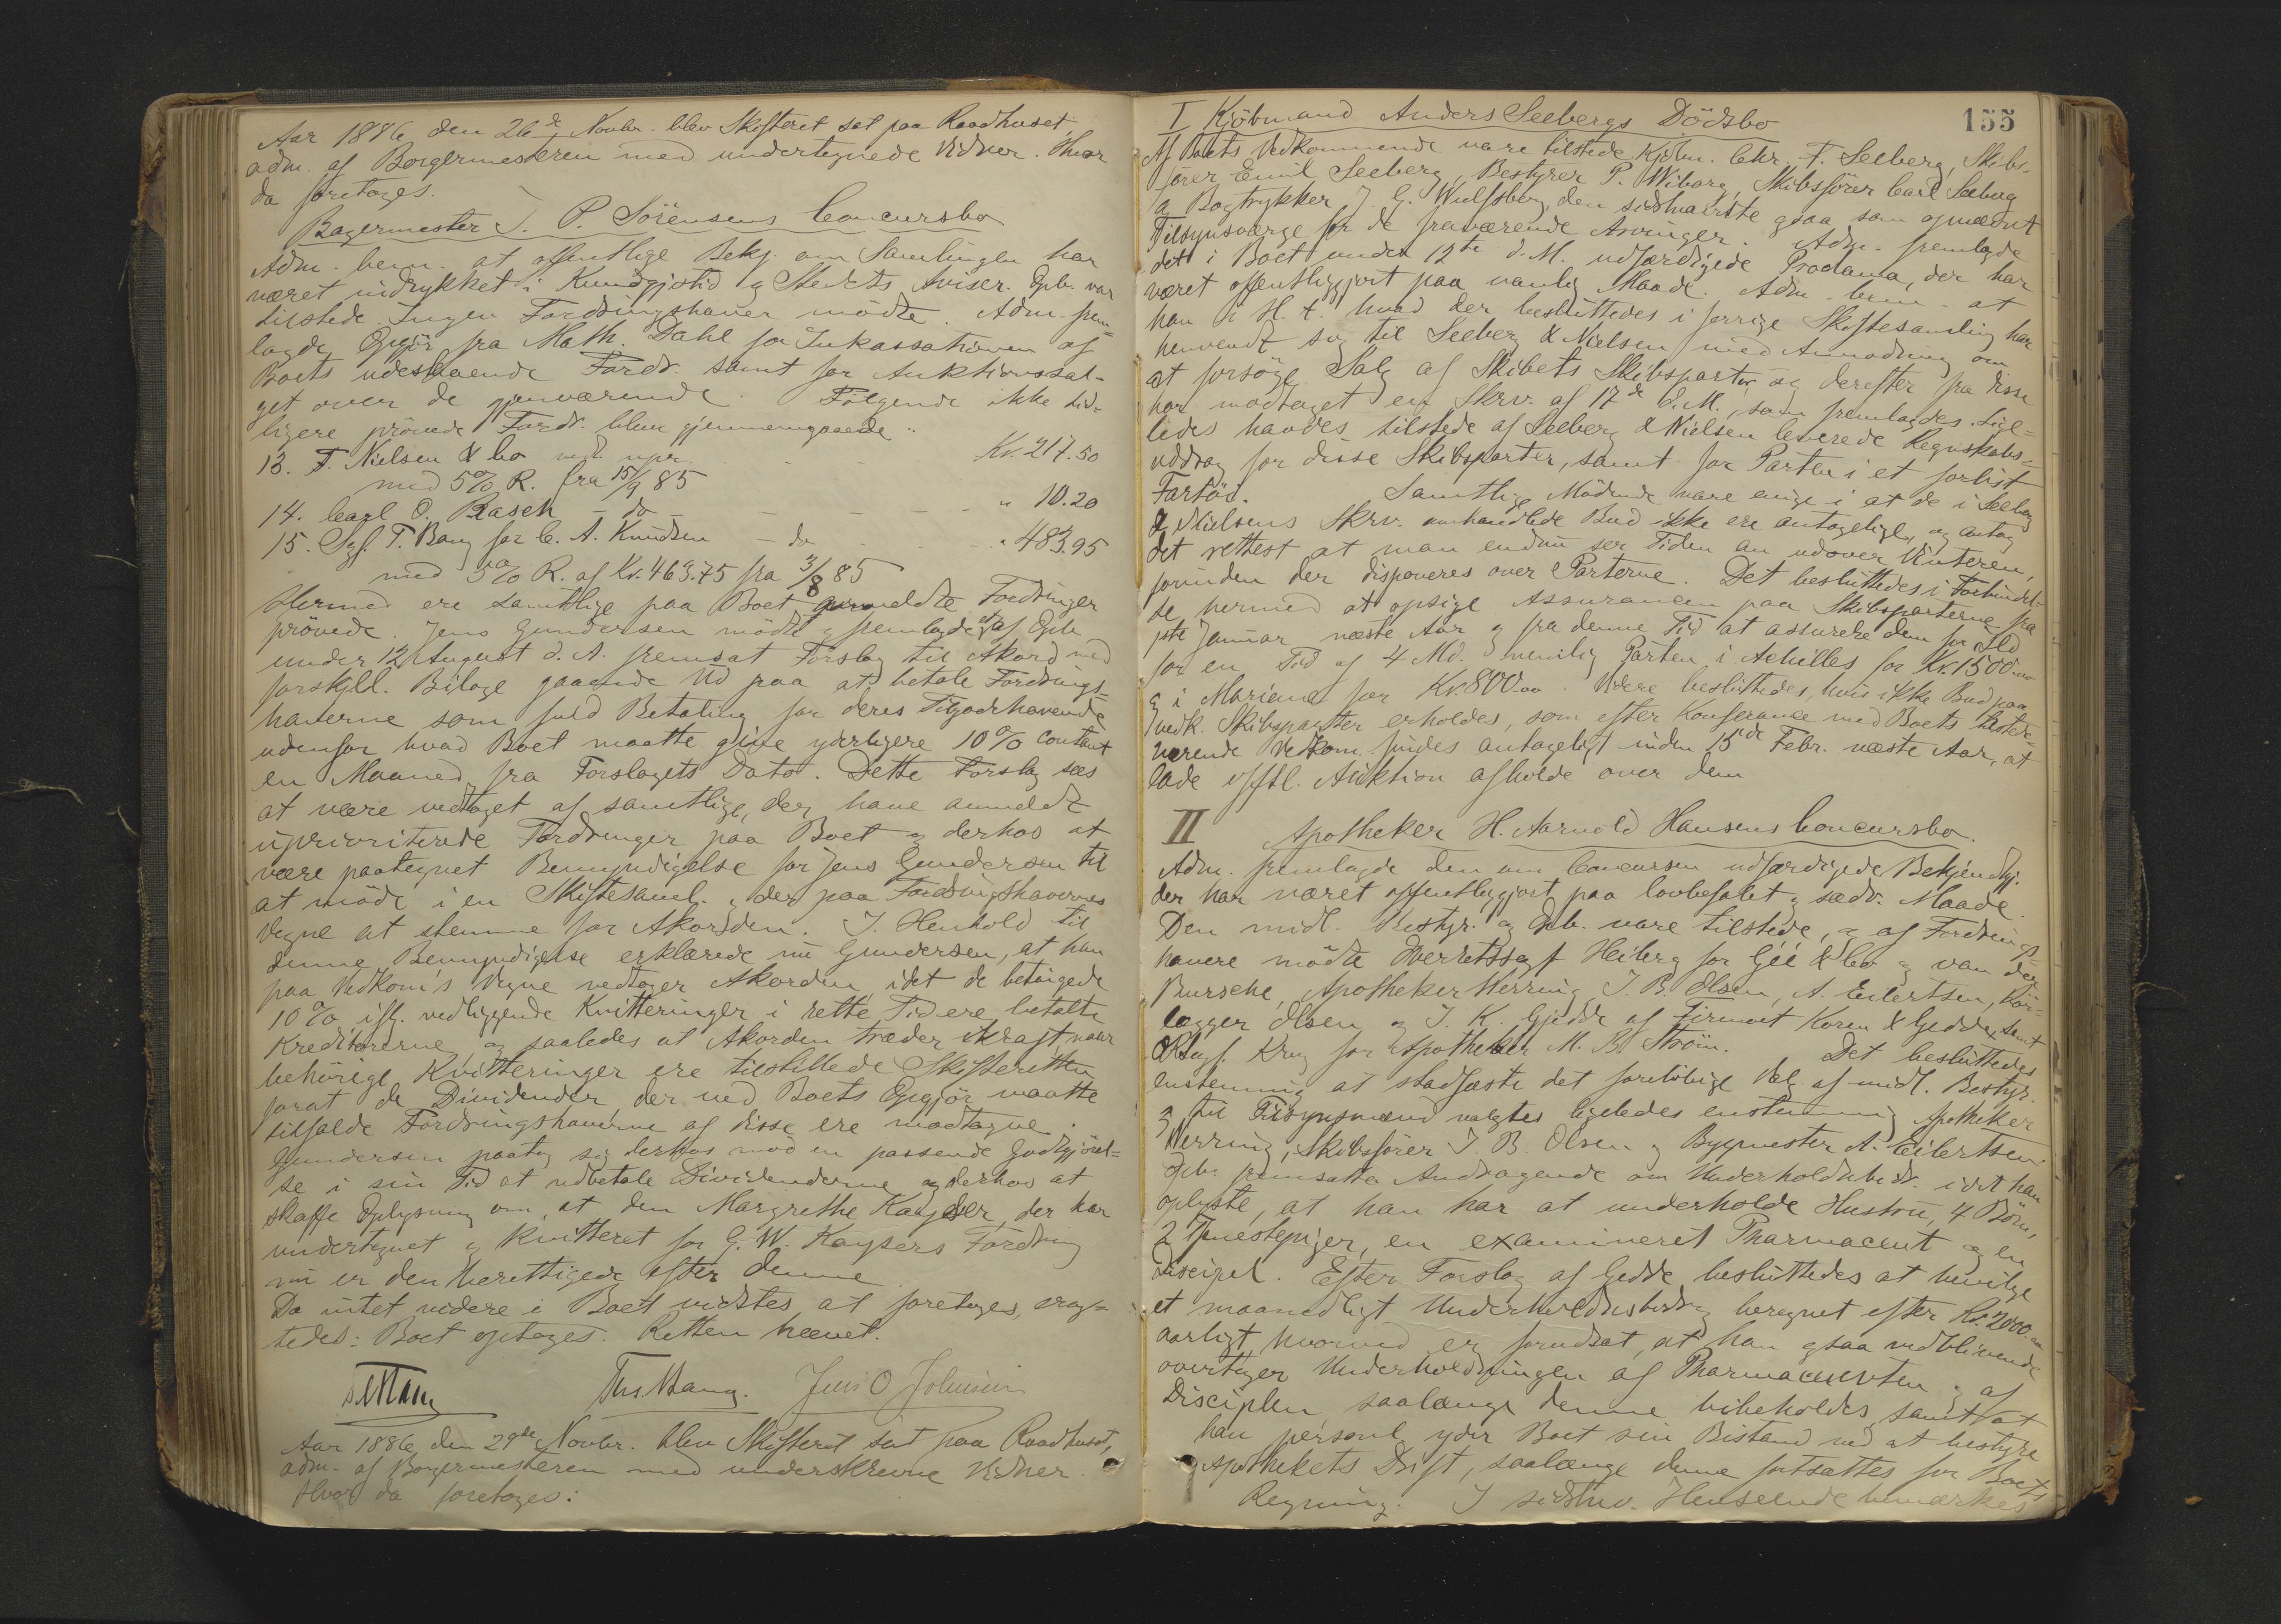 Aar 1886 den 26de Novbr. blev Skifteret sat paa Raadhuset
adm. af Borgermesteren med undertegnede Vidner. Hvor
da foretoges.
Bagermester T. P. Sörensens Concursbo
Adm. bem. at offentlige Bekj. om Samlingen har
været indrykket i Kundgjtid. og Stedets Aviser. Opb. var
tilstede. Ingen Fordringshaver mödte. Adm. frem=
lagde Opgjör fra Math. Dahl for Inkassationen af
Boets udestaaende Fordr. samt for Auktionssal-
get over de gjenværende. Fölgende ikke tid=
ligere prövede Fordr. blev gjennemgaaede:
13. F. Nielsen & Co ved. upr. Kr. 217.50
med 5% R. fra 15/9 85
14. Carl O. Rasch - do - " 10.20
15. Sgf. T. Bang for C. A. Knudsen - do " 483.95
med 5% R. af Kr. 463.75 fra 3/8 85
Hermed ere samtlige paa Boet anmeldte Fordringer
prövede. Jens Gundersen mödte og fremlagde et af Opb.
under 12 August d. A. fremsat Forslag til Akord med
forskjell. Bilage gaaende ud paa at betale Fordrings=
haverne som fuld Betaling for deres Tilgodehavende
udenfor hvad Boet maatte give yderligere 10% contant
en Maaned fra Forslagets Dato. Dette Forslag sees
at være vedtaget af samtlige, der have anmeldt
uprioriterede Fordringer paa Boet og derhos at
være paategnet Bemyndigelse for Jens Gundersen til
at möde i en Skiftesaml. og der paa Fordringshavernes
Vegne at stemme for Akorden. I Henhold til
denne Bemyndigelse erklærede nu Gundersen, at han
paa Vedkom's Vegne vedtager Akorden, idet de betingede
10% iflg. vedliggende Kvitteringer i rette Tid ere betalte
Kreditorerne og saaledes at Akorden træder ikraft, naar
behörige Kvitteringer ere tilstillede Skifteretten
forat de Dividender, der ved Boets Opgjör maatte
tilfalde Fordringshaverne af disse ere modtagne.
Gundersen paatog sig derhos mod en passende Godtgjörel=
se i sin Tid at udbetale Dividenderne og derhos at
skaffe Oplysning om, at den Margrethe Kayser, der har
undertegnet og kvitteret for G. W. Kaysers Fordring
nu er den berettigede efter denne.
Da intet videre i Boet vidstes at foretages, erag=
tedes: Boet optages. Retten hævet.
Ths. Bang. Jens O Johnsen
Aar 1886 den 29de Novbr. blev Skifteret sat paa Raadhuset,
adm. af Borgermesteren med underskrevne Vidner.
Hvor da foretoges:
155
I Kjöbmand Anders Seebergs Dödsbo
Af Boets Vedkommende vare tilstede Kjöbm. Chr. F. Seeberg, Skibs-
förer Emil Seeberg, Bestyrer P. Wiborg, Skibsförer Carl Seeberg
og Bogtrykker J. G. Wulfsberg, den sidstnævnte ogsaa som opnævnt
Tilsynsværge for de fraværende Arvinger. Adm. fremlagde
det i Boet under 12te d. M. udfærdigede Proclama, der har
været offentliggjort paa vanlig Maade. Adm. bem. at
han i H. t. hvad der besluttedes i forrige Skiftesamling har
henvendt sig til Seeberg & Nielsen med Anmodning om
at forsöge Salg af Skibets Skibsparter og derefter fra disse
har modtaget en Skrv. af 17de d. M., som fremlagdes. Lige=
ledes havdes tilstede af Seeberg & Nielsen leverede Regnskabs=
uddrag for disse Skibsparter, samt for Parten i et forlist
Fartöi. Samtlige Mödende vare enige i at de i Seeberg
& Nielsens Skrv. omhandlede Bud ikke ere antagelige, og antog
det rettest at man endnu ser Tiden an udover Vinteren,
forinden der disponeres over Parterne. Det besluttedes i Forbindel-
se hermed at opsige Assurancen paa Skibsparterne fra
1ste Januar næste Aar og fra denne Tid at assurere dem for Ild
for en Tid af 4 Md. nemlig Parten i Achilles for Kr. 1500.00
og i Mariane for Kr. 800.00. Videre besluttedes, hvis ikke Bud paa
vedk. Skibsparter erholdes, som efter Konferance med Boets tilstede=
værende Vedkom. findes antageligt inden 15de Febr. næste Aar, at
lade offtl. Auktion afholde over dem
II Apotheker H. Aarnold Hansens Concursbo.
Adm. fremlagde den om Concursen udfærdigede Bekjendtgj.
der har været offentliggjort paa lovbefalet og sædv. Maade.
Den midl. Bestyr. og Opb. vare tilstede, og af Fordrings-
havere mödte Overretssagf. Heiberg for Géé & Co og van der
Bursche, Apotheker Herring, J. B. Olsen, A. Eilertsen, Rör-
lægger Olsen og J. K. Gjedde af Firmaet Koren & Gedde, samt
ORsagf. Krag for Apotheker M. B. Ström. Det besluttedes
enstemmig at stadfæste det foreløbige Valg af midl. Bestyr.
og til Tilsynsmænd valgtes ligeledes enstemmig Apotheker
Herring, Skibsförer J. B. Olsen og Bygmester A. Eilertsen.
Opb. fremsatte Andragende om Underholdsbidr. idet han
oplyste, at han har at underholde Hustru, 4 Börn,
2 Tjenestepiger, en examineret Pharmaceut og en
Discipel. Efter Forslag af Gedde besluttedes at bevilge
et maanedligt Underholdsbidrag beregnet efter Kr. 2000.00
aarligt, hvorved er forudsat, at han ogsaa vedblivende
overtager Underholdningen af Pharmaceuten og af
Disciplen, saalænge denne bibeholdes, samt at
han personl. yder Boet sin Bistand ved at bestyre
Apothekets Drift, saalænge denne fortsættes for Boets
Regning. I sidstnv. Henseende bemærkes